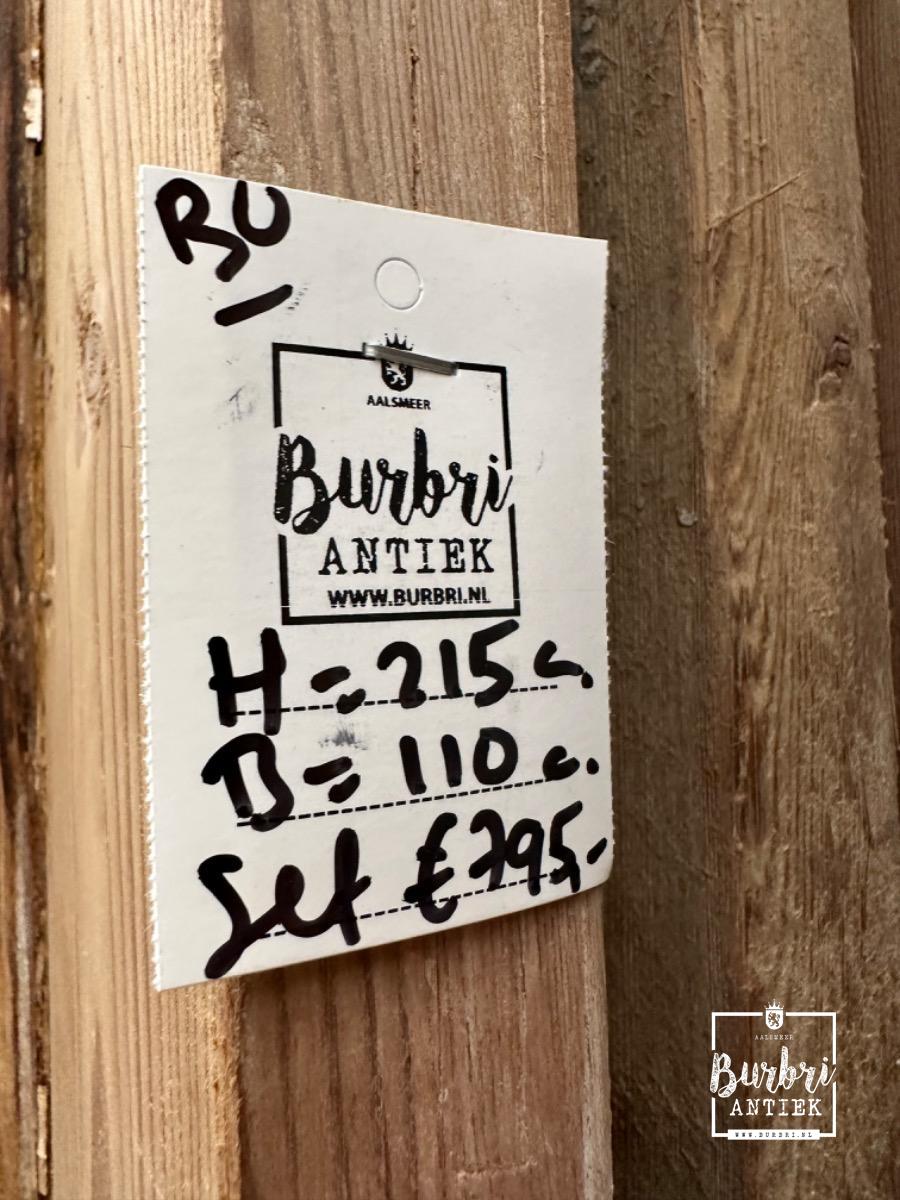 BU
AALSMEER
Burbri
ANTIEK
WWW.BURBRI.NL
H = 215 c.
B = 110 c.
Set € 795,-
AALSMEER
Burbri
ANTIEK
WWW.BURBRI.NL